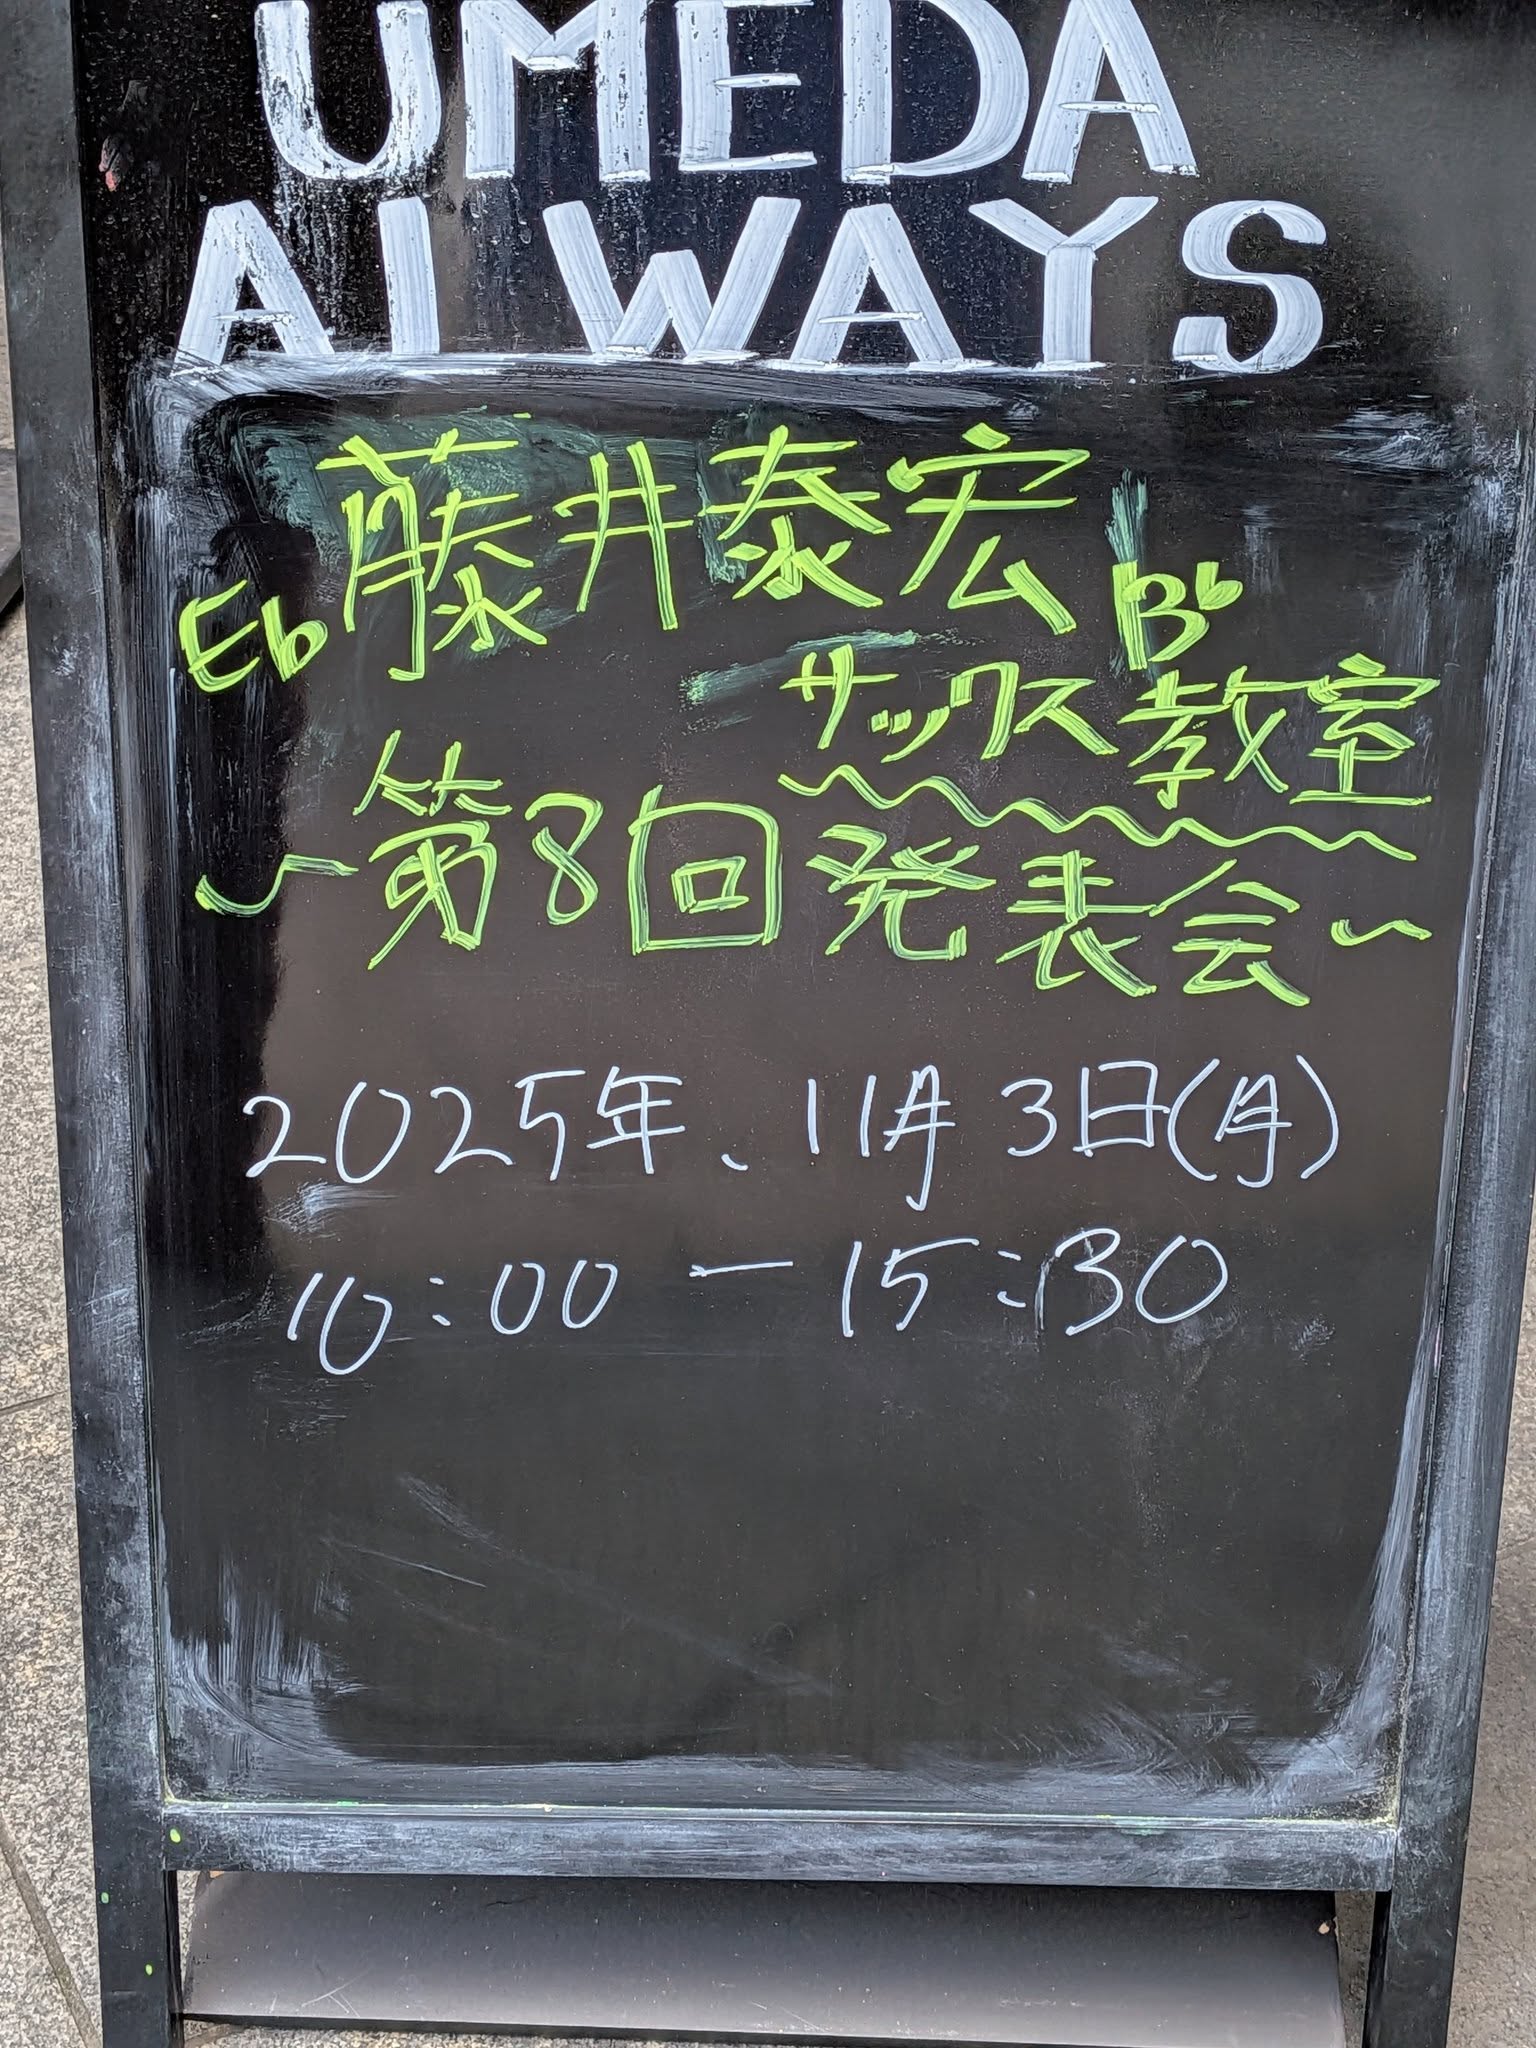 UMEDA
ALWAYS
Eb 藤井泰宏 Bb
サックス教室
~第8回発表会~
2025年、11月3日(月)
10:00ー15:30